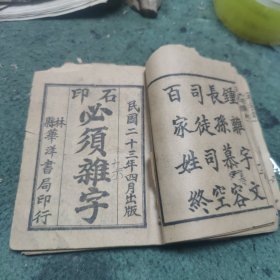 鍾離宇文
長孫慕容
司徒司空
百家姓終
石印
民國二十三年四月出版
必須雜字
林縣華洋書局印行